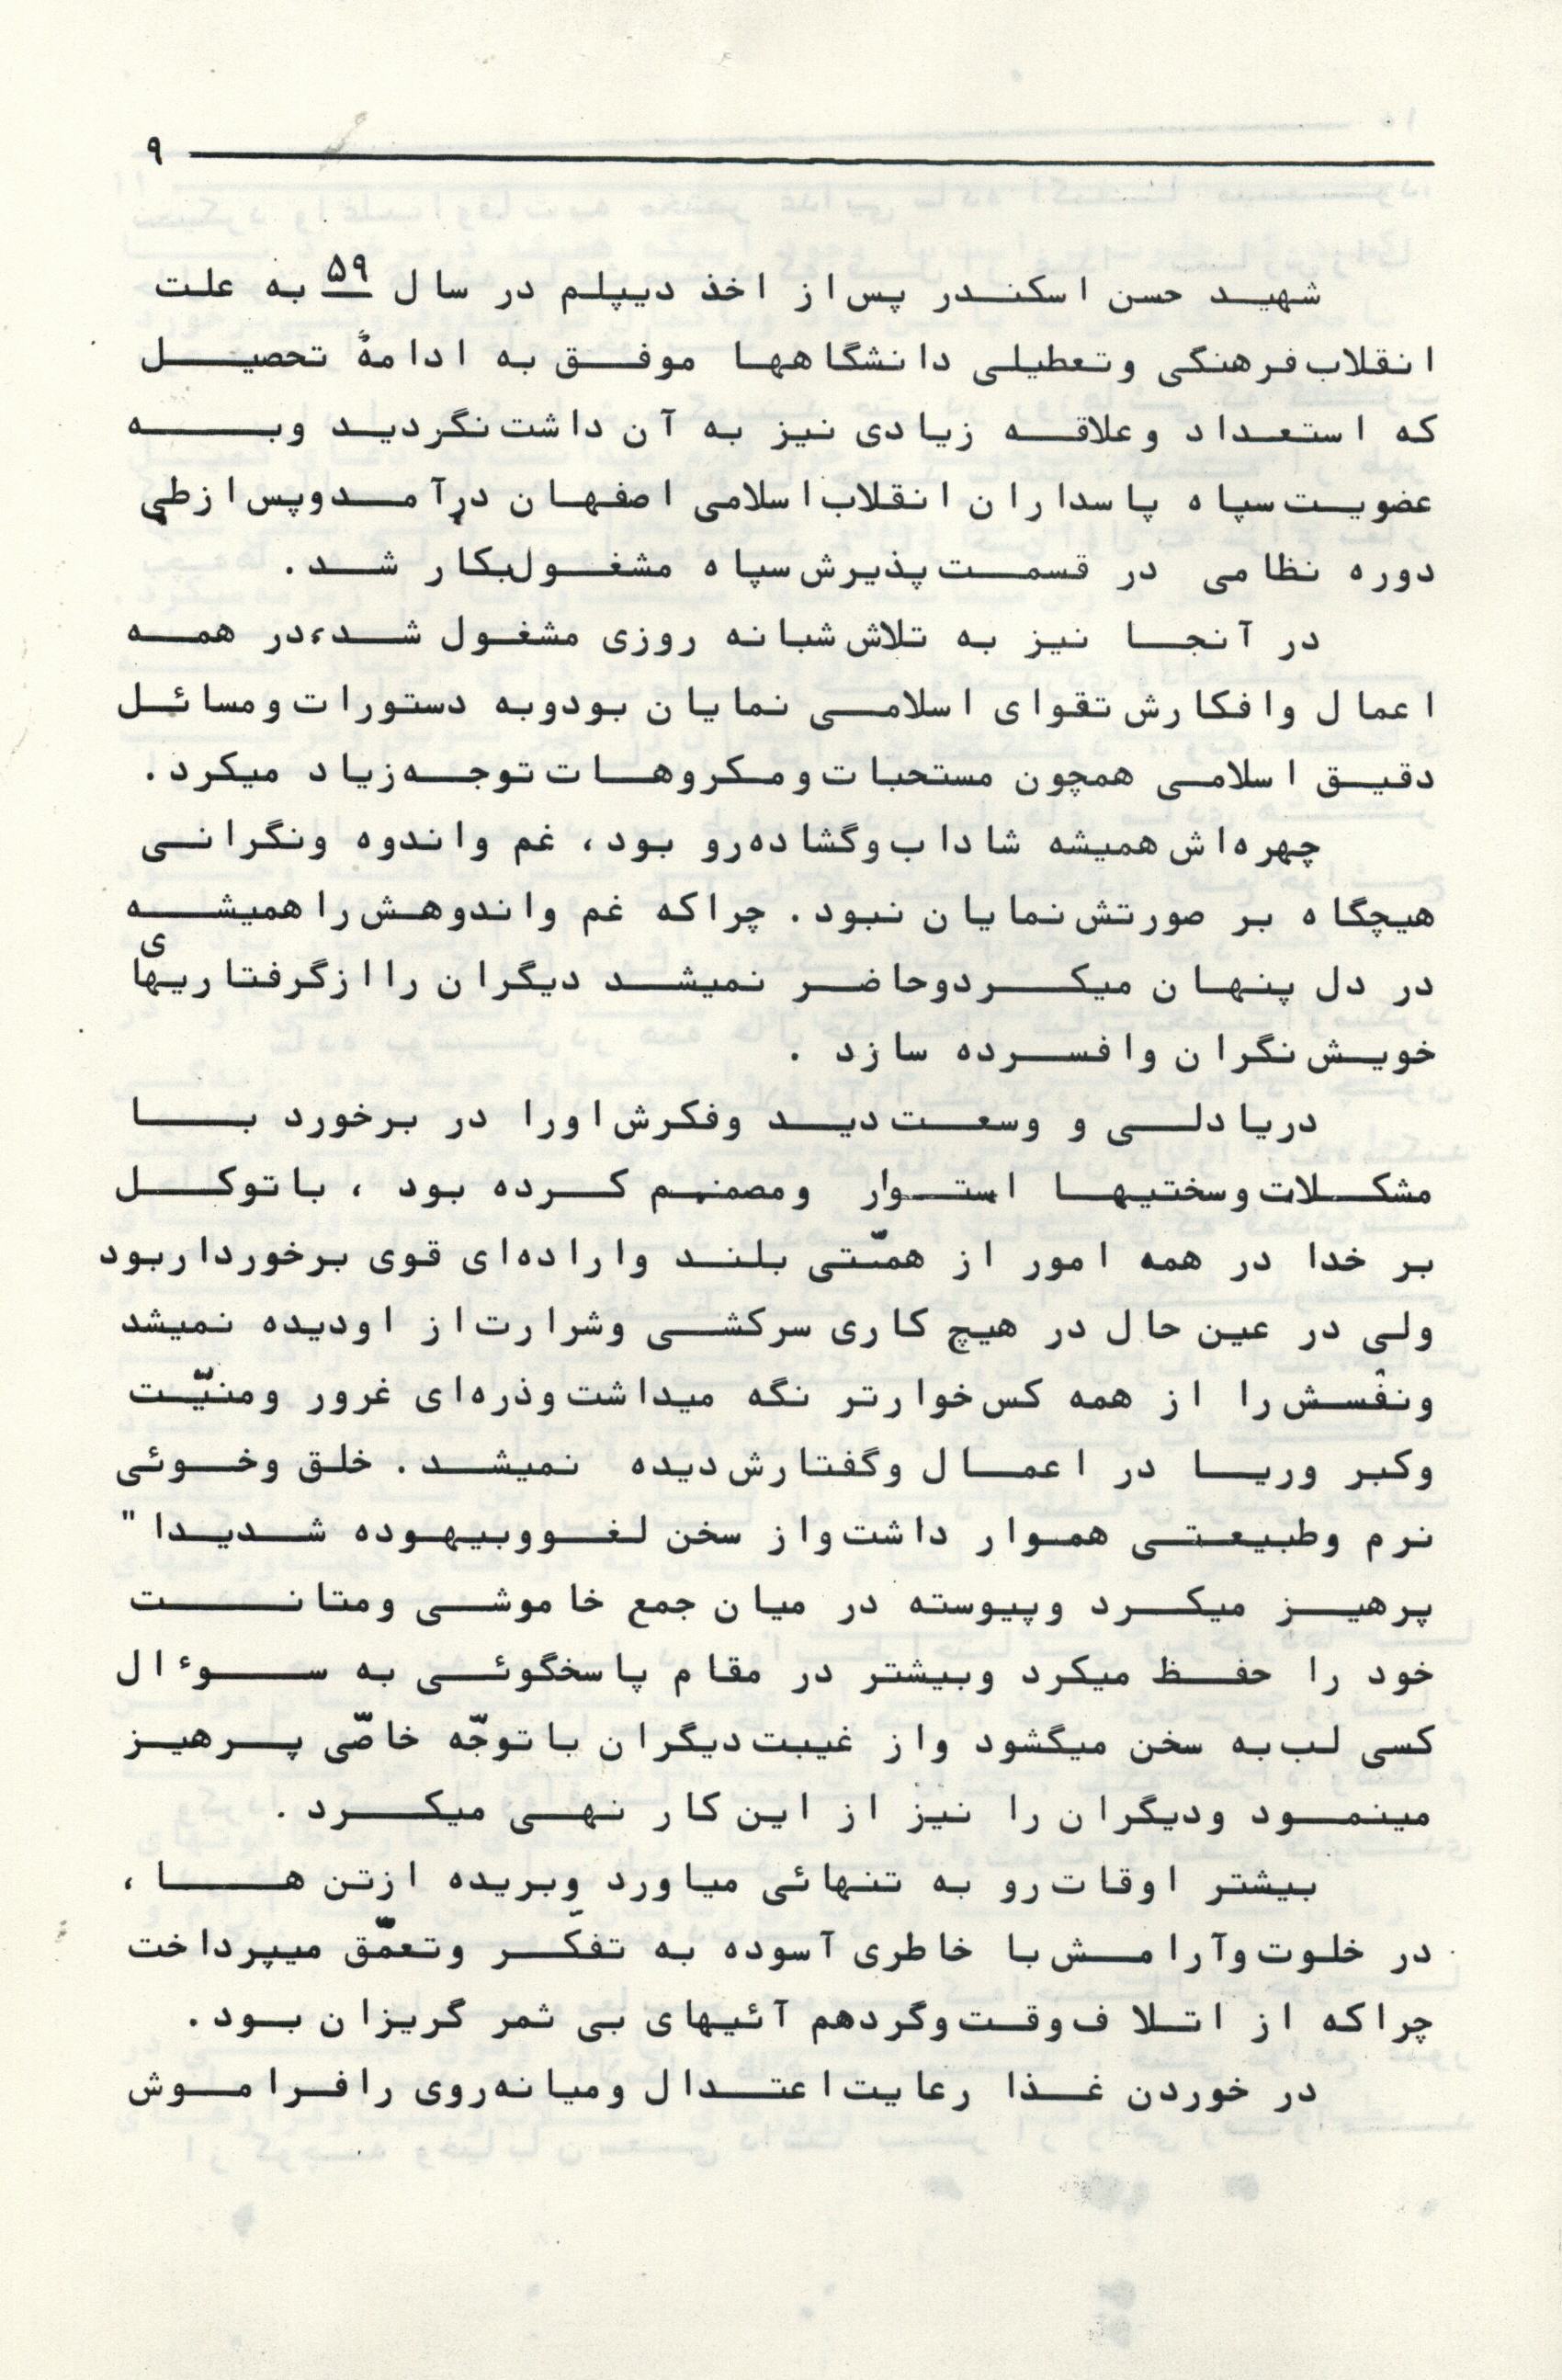 ۹
شهید حسن اسکندر پس از اخذ دیپلم در سال ۵۹ به علت
انقلاب فرهنگی وتعطیلی دانشگاهها موفق به ادامهٔ تحصیل
که استعداد وعلاقه زیادی نیز به آن داشت نگردید وبه
عضویت سپاه پاسداران انقلاب اسلامی اصفهان درآمد وپس از طی
دوره نظامی در قسمت پذیرش سپاه مشغول بکار شد.
در آنجا نیز به تلاش شبانه روزی مشغول شد، در همه
اعمال وافکارش تقوای اسلامی نمایان بود وبه دستورات ومسائل
دقیق اسلامی همچون مستحبات ومکروهات توجه زیاد میکرد.
چهره‌اش همیشه شاداب وگشاده‌رو بود، غم واندوه ونگرانی
هیچگاه بر صورتش نمایان نبود. چراکه غم واندوهش را همیشه
در دل پنهان میکرد وحاضر نمیشد دیگران را از گرفتاریهای
خویش نگران وافسرده سازد .
دریا دلی و وسعت دید وفکرش اورا در برخورد با
مشکلات وسختیها استوار ومصمم کرده بود ، با توکل
بر خدا در همه امور از همّتی بلند واراده‌ای قوی برخوردار بود
ولی در عین حال در هیچ کاری سرکشی وشرارت از اودیده نمیشد
ونفسش را از همه کس خوارتر نگه میداشت وذره‌ای غرور ومنیّت
وکبر وریا در اعمال وگفتارش دیده نمیشد. خلق وخوئی
نرم وطبیعتی هموار داشت واز سخن لغو وبیهوده شدیدا "
پرهیز میکرد وپیوسته در میان جمع خاموشی ومتانت
خود را حفظ میکرد وبیشتر در مقام پاسخگوئی به سوءال
کسی لب به سخن میگشود واز غیبت دیگران با توجّه خاصّی پرهیز
مینمود ودیگران را نیز از این کار نهی میکرد .
بیشتر اوقات رو به تنهائی میاورد وبریده ازتن ها ،
در خلوت وآرامش با خاطری آسوده به تفکّر وتعمّق میپرداخت
چراکه از اتلاف وقت وگردهم آئیهای بی ثمر گریزان بود.
در خوردن غذا رعایت اعتدال ومیانه‌روی را فراموش